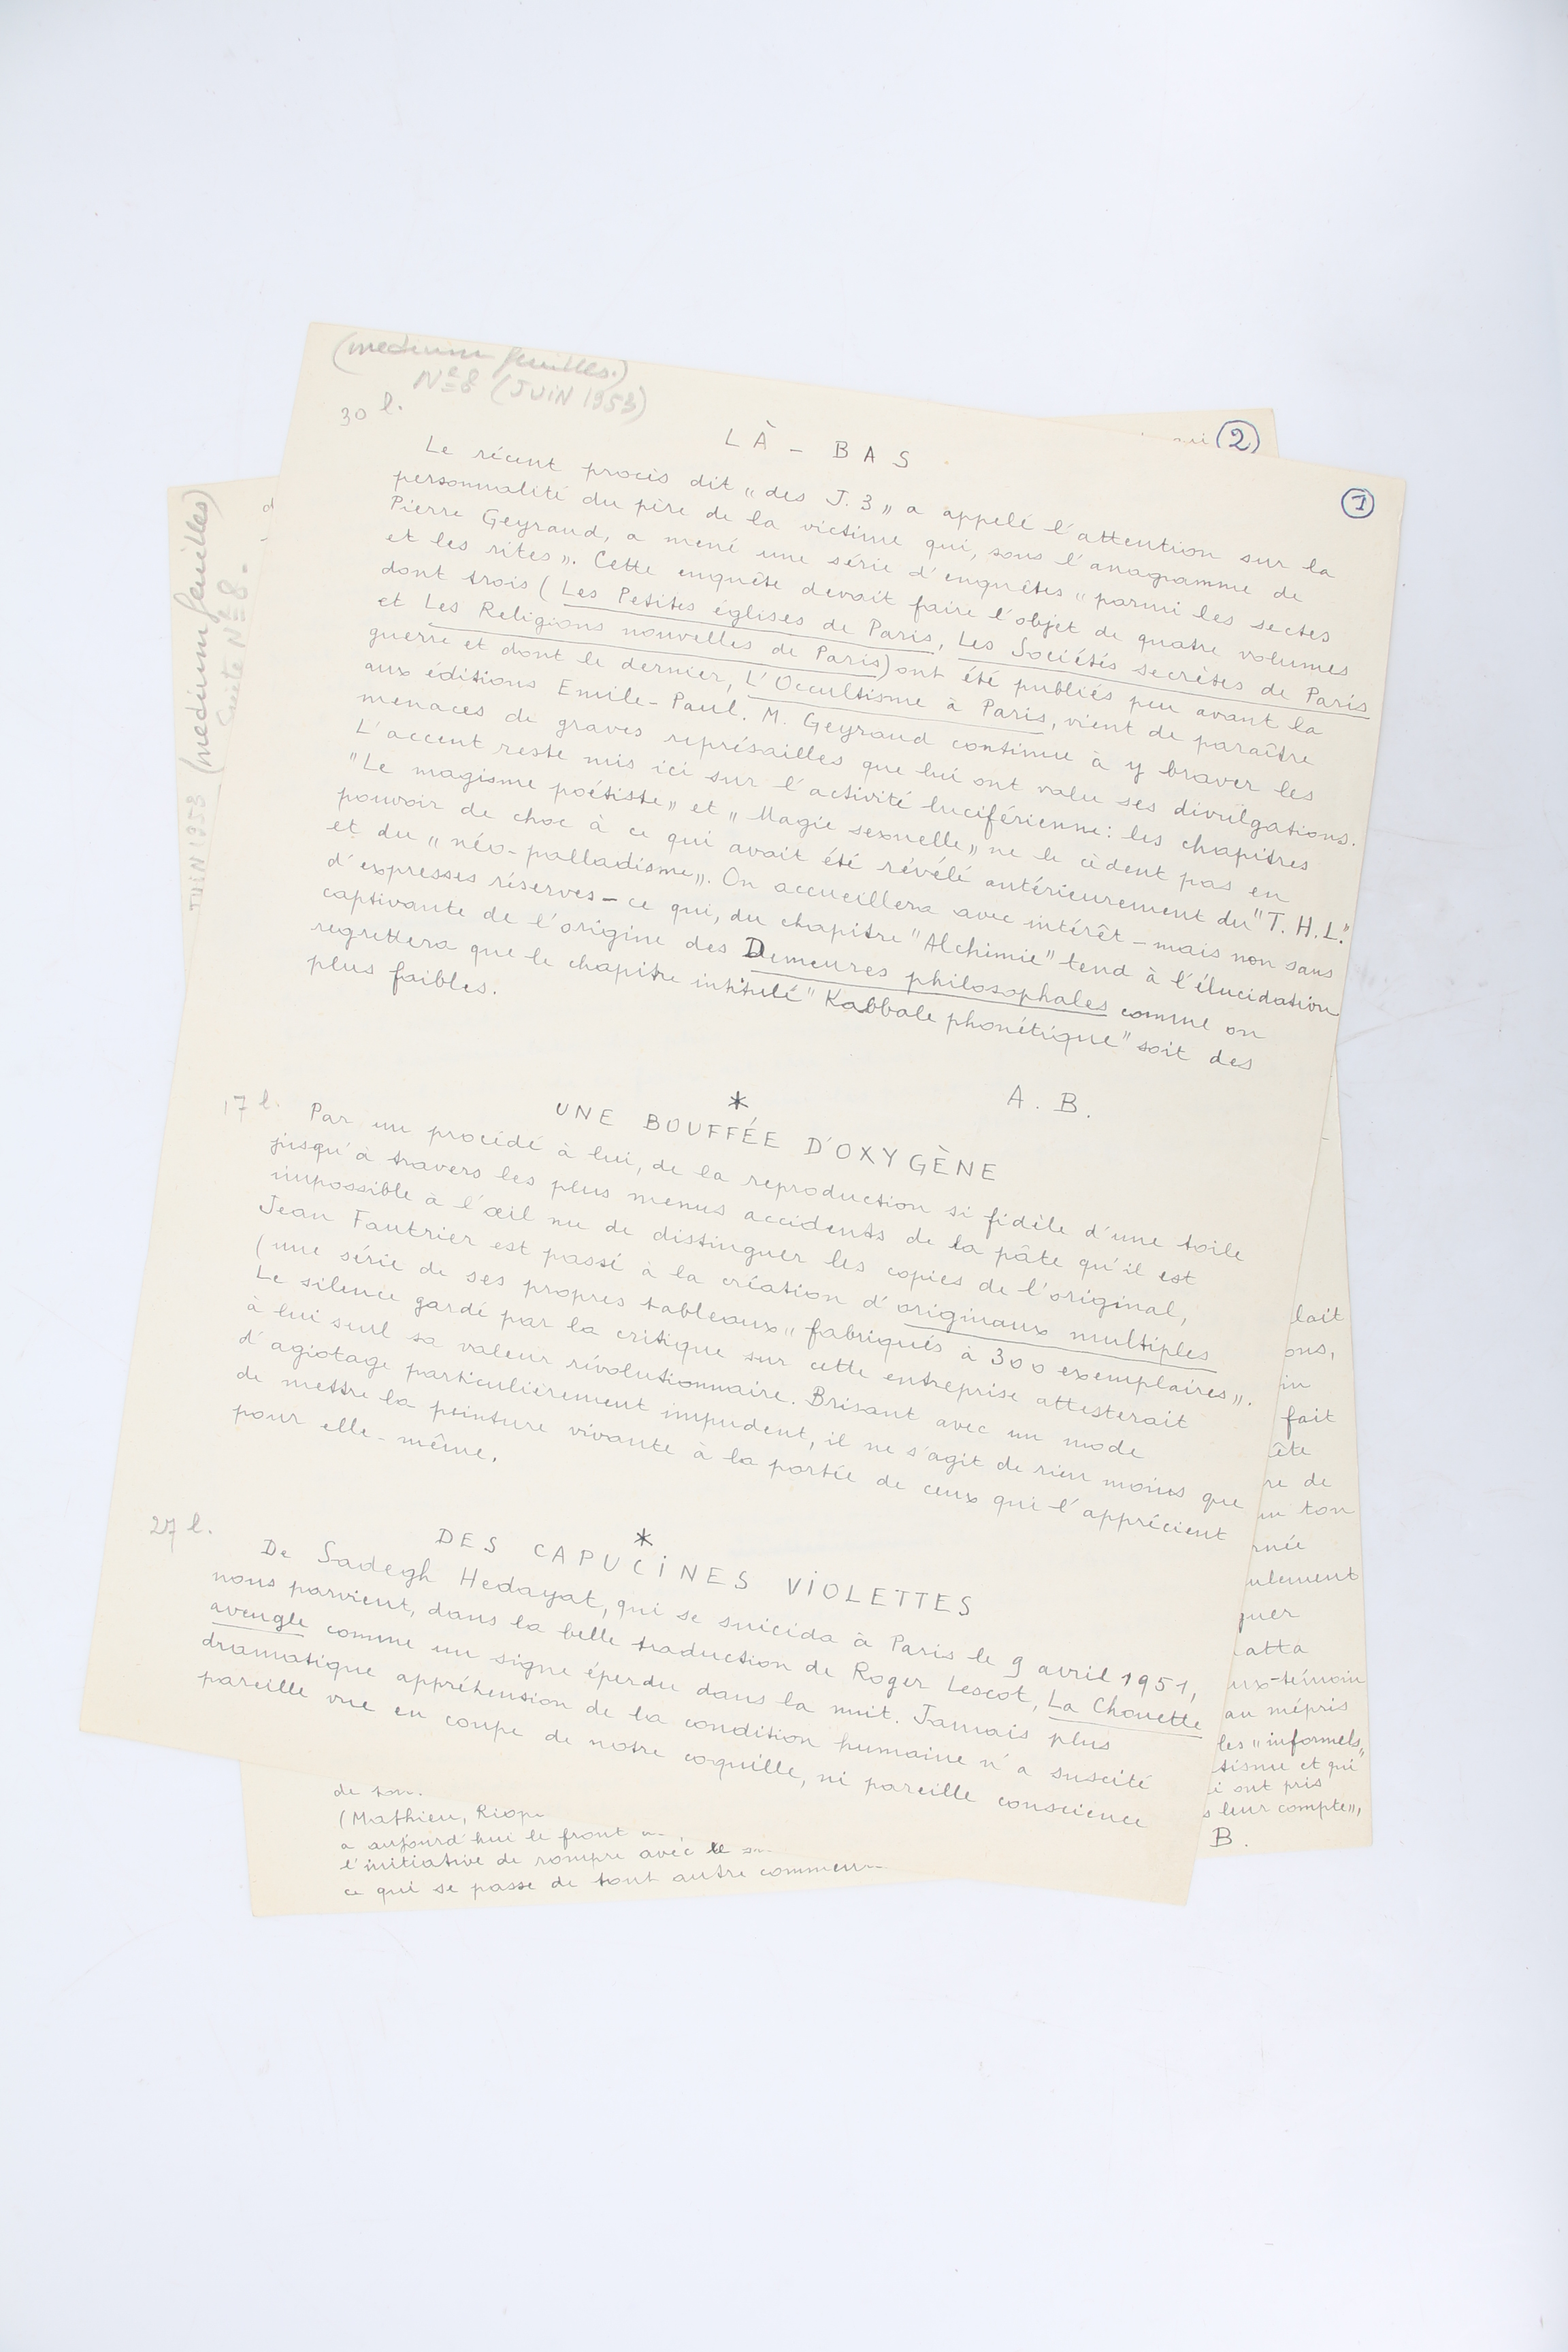 (medium feuilles.)
N° 8 (JUIN 1953)
30 l.
①
LÀ-BAS
Le récent procès dit „des J.3„ a appelé l'attention sur la
personnalité du père de la victime qui, sous l'anagramme de
Pierre Geyraud, a mené une série d'enquêtes „parmi les sectes
et les rites„. Cette enquête devait faire l'objet de quatre volumes
dont trois (Les Petites églises de Paris, Les Sociétés secrètes de Paris
et Les Religions nouvelles de Paris) ont été publiés peu avant la
guerre et dont le dernier, L'Occultisme à Paris, vient de paraître
aux éditions Emile-Paul. M. Geyraud continue à y braver les
menaces de graves représailles que lui ont valu ses divulgations.
L'accent reste mis ici sur l'activité luciférienne: les chapitres
"Le magisme poétiste„ et „Magie sexuelle„ ne le cèdent pas en
pouvoir de choc à ce qui avait été révélé antérieurement du "T. H. L."
et du „néo-palladisme„. On accueillera avec intérêt – mais non sans
d'expresses réserves – ce qui, du chapitre "Alchimie" tend à l'élucidation
captivante de l'origine des Demeures philosophales comme on
regrettera que le chapitre intitulé "Kabbale phonétique" soit des
plus faibles.
A. B.
*
17 l.
UNE BOUFFÉE D'OXYGÈNE
Par un procédé à lui, de la reproduction si fidèle d'une toile
jusqu'à travers les plus menus accidents de la pâte qu'il est
impossible à l'œil nu de distinguer les copies de l'original,
Jean Fautrier est passé à la création d'originaux multiples
(une série de ses propres tableaux „fabriqués à 300 exemplaires„.
Le silence gardé par la critique sur cette entreprise attesterait
à lui seul sa valeur révolutionnaire. Brisant avec un mode
d'agiotage particulièrement impudent, il ne s'agit de rien moins que
de mettre la peinture vivante à la portée de ceux qui l'apprécient
pour elle-même.
*
27 l.
DES CAPUCINES VIOLETTES
De Sadegh Hedayat, qui se suicida à Paris le 9 avril 1951,
nous parvient, dans la belle traduction de Roger Lescot, La Chouette
aveugle comme un signe éperdu dans la nuit. Jamais plus
dramatique appréhension de la condition humaine n'a suscité
pareille vue en coupe de notre coquille, ni pareille conscience
②
JUIN 1953 (medium feuilles)
Suite N° 8.
lait
ons,
in
fait
ête
re de
un ton
rnée
ulement
quer
atta
ux-témoin
au mépris
les „informels„
tisme et qui
i ont pris
s leur compte„,
B.
de
(Mathieu, Riop
a aujourd'hui le front
l'initiative de rompre avec le
ce qui se passe de tout autre commen